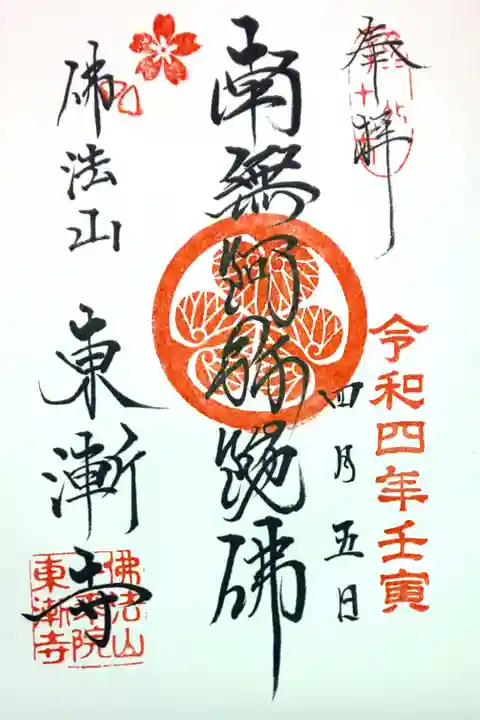 奉拝
令和四年壬寅
四月五日
南無阿弥陀佛
佛法山
東漸寺
佛法山
東漸寺